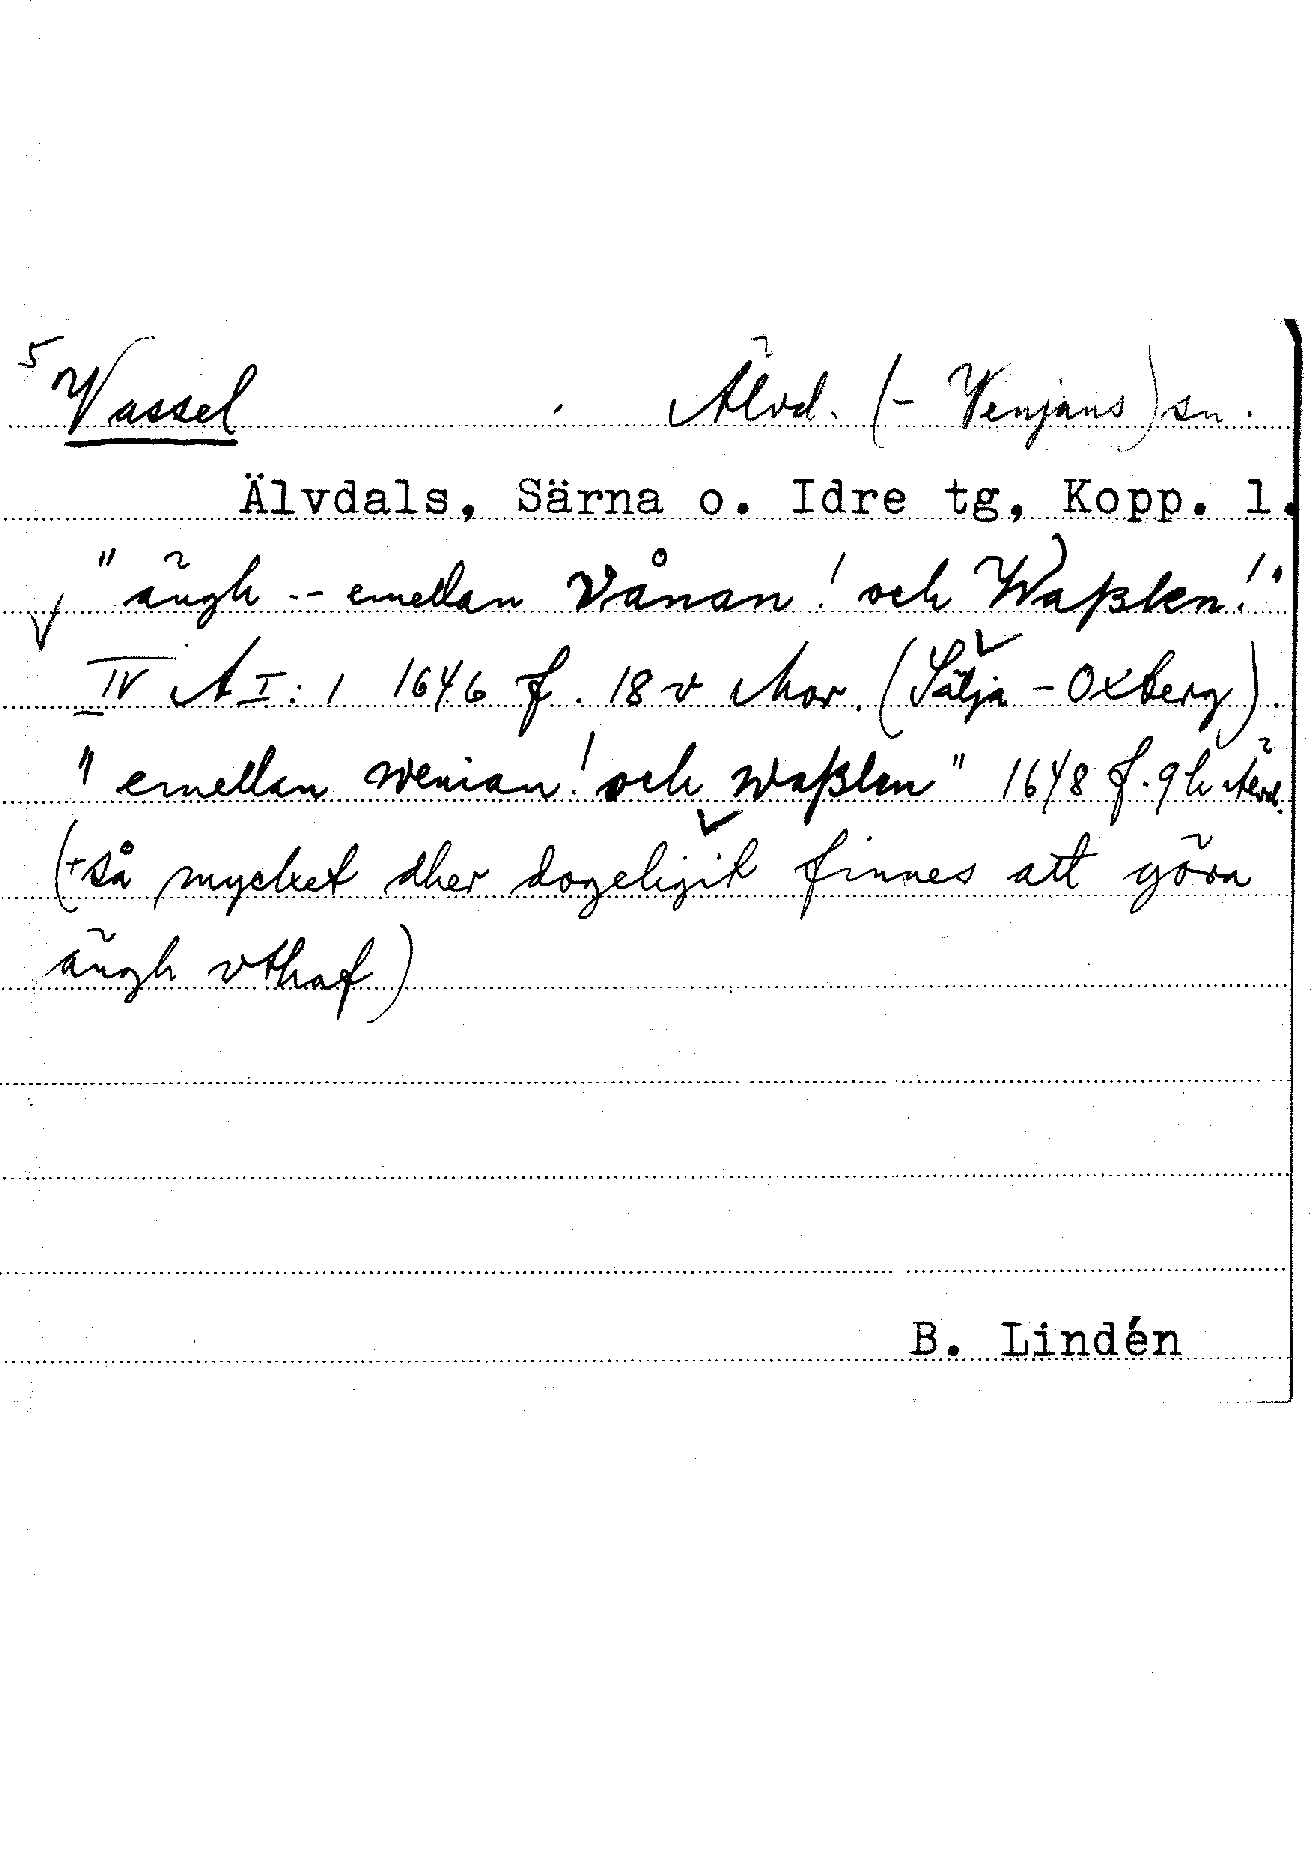 5 Vassel Älvd. (- Venjans) sn.
Älvdals, Särna o. Idre tg, Kopp. l.
" ängh -- emellan Vånan! och Waßlen!"
IV A I: 1 1646 f. 18 v Mor. (Sälja - Oxberg).
" emellan wenian! och waßlen" 1648 f. 9 h Älvd.
(+ så mycket dher dogeligit finnes att göra
ängh vthaf)
B. Lindén